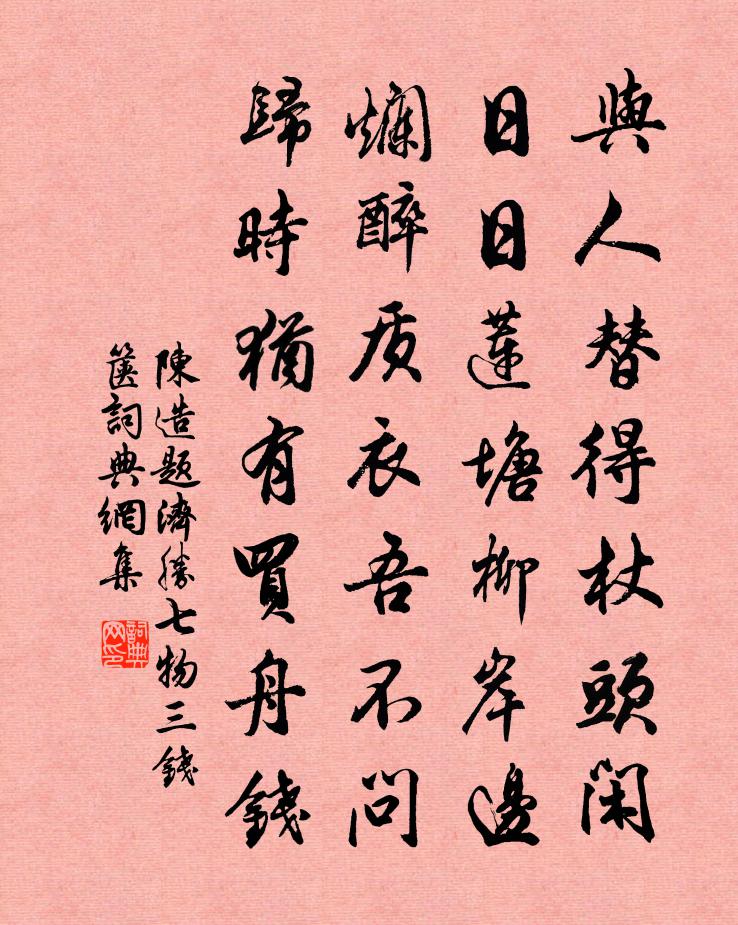 與人替得杖頭閑
日日蓮塘柳岸邊
爛醉质衣吾不問
歸時猶有買舟錢
陳造題濟勝七物三錢
篋詞典網集
詞典
网印